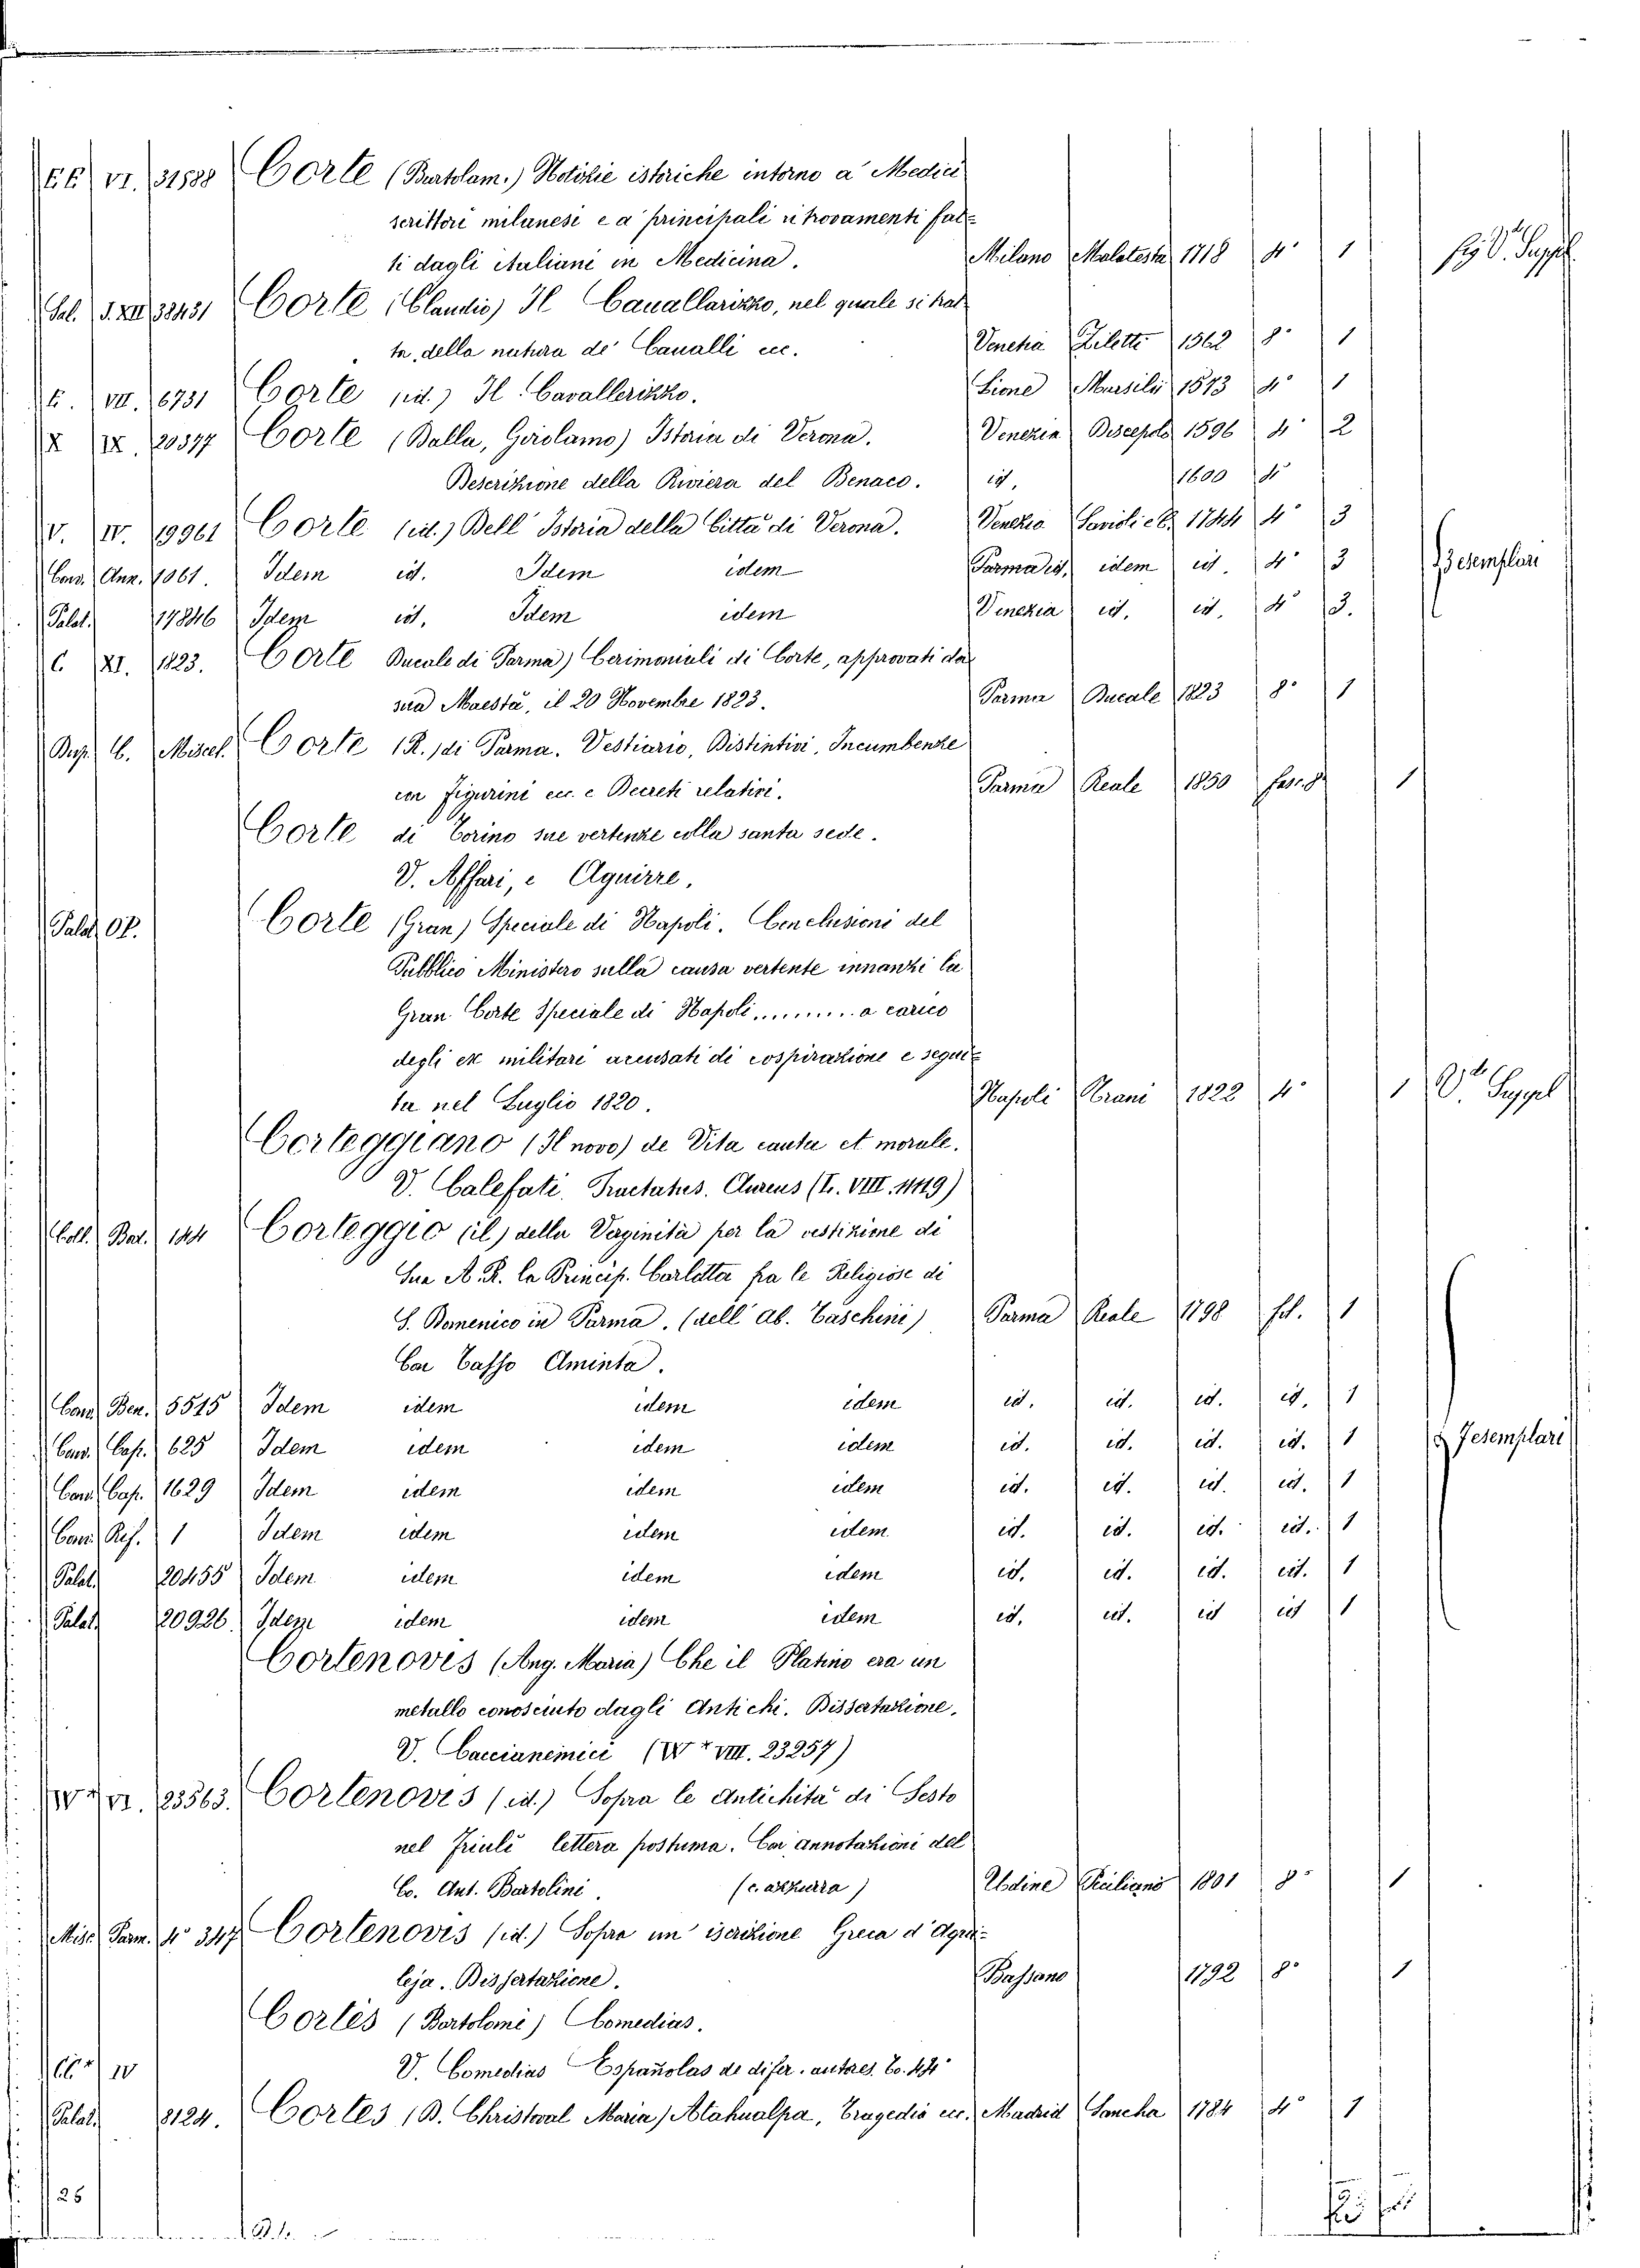 EE VI. 31588 Corte (Bartolam.) Notizie istoriche intorno a' Medici
scrittori milanesi e a' principali ritrovamenti fat=
ti dagli Italiani in Medicina. Milano Malatesta 1718 4° 1 V. Suppl
Sal. J. XII 33431 Corte (Claudio) Il Cauallarizzo, nel quale si trat
ta, della natura de' Caualli ecc. Venetia Ziletti 1562 8° 1
E. VII. 6731 Corte (id.) Il Cavallerizzo. Lione Marsilii 1573 4° 1
X IX. 20377 Corte (Dalla, Girolamo) Istoria di Verona. Venezia Discepolo 1596 4° 2
Descrizione della Riviera del Benaco. id. 1600 4°
V. IV. 19961 Corte (id.) Dell' Istoria della Città di Verona. Venezia Savioli e C. 1744 4° 3
Conv. Ann. 1061. Idem id. Idem idem Parma id. idem id. 4° 3 3 esemplari
Palat. 17846 Idem id. Idem idem Venezia id. id. 4° 3.
C XI. 1823. Corte Ducale di Parma) Cerimoniali di Corte, approvati da
sua Maestà, il 20 Novembre 1823. Parma Ducale 1823 8° 1
C. Miscel. Corte (R. di Parma. Vestiario, Distintivi, Incumbenze
con figurini ecc. e Decreti relativi. Parma Reale 1850 1
Corte di Torino sue vertenze colla santa sede.
V. Affari, e Aguirre.
Palat. Corte (Gran) Speciale di Napoli. Conclusioni del
Pubblico Ministero sulla causa vertente innanzi la
Gran Corte Speciale di Napoli .......... a carico
degli ex militari accusati di cospirazione e segui=
ta nel Luglio 1820. Napoli Trani 1822 4° 1 V. Suppl
Corteggiano (Il novo) de Vita cauta et morale.
V. Calefati. Tractatus. Aureus (L. VIII. 11119)
Coll. Bat. 144 Corteggio (il) della Verginità per la vestizione di
Sua A. R. la Princip. Carlotta fra le Religiose di
S. Domenico in Parma. (dell' ab. Taschini) Parma Reale 1798 fol. 1
Con Tasso Aminta.
Conv. Ben. 5515 Idem idem idem idem id. id. id. id. 1
Conv. Cap. 625 Idem idem idem idem id. id. id. id. 1 7 esemplari
Conv. Cap. 1629 Idem idem idem idem id. id. id. id. 1
Conv. Ref. 1 Idem idem idem idem id. id. id. id. 1
Palat. 20455 Idem idem idem idem id. id. id. id. 1
Palat. 20926. Idem idem idem idem id. id. id id 1
Cortenovis (Ang. Maria) Che il Platino era un
metallo conosciuto dagli Antichi. Dissertazione.
V. Caccianemici (W* VIII. 23257)
W* VI. 23563. Cortenovis (id.) Sopra le Antichità di Sesto
nel Friuli lettera postuma. Con annotazioni del
Co. Ant. Bartolini. (c. azzurra) Udine 1801 8° 1
Misc. Parm. 4° 347 Cortenovis (id.) Sopra un' iscrizione Greca d'Aqui=
leja. Dissertazione. Bassano 1792 8° 1
Cortès (Bartolomè) Comedias.
IV V. Comedias Españolas de difer. autores. To. 44°
Palat. 8124. Cortes (D. Christoval Maria) Atahualpa, Tragedia ecc. Madrid Sancha 1784 4° 1
25